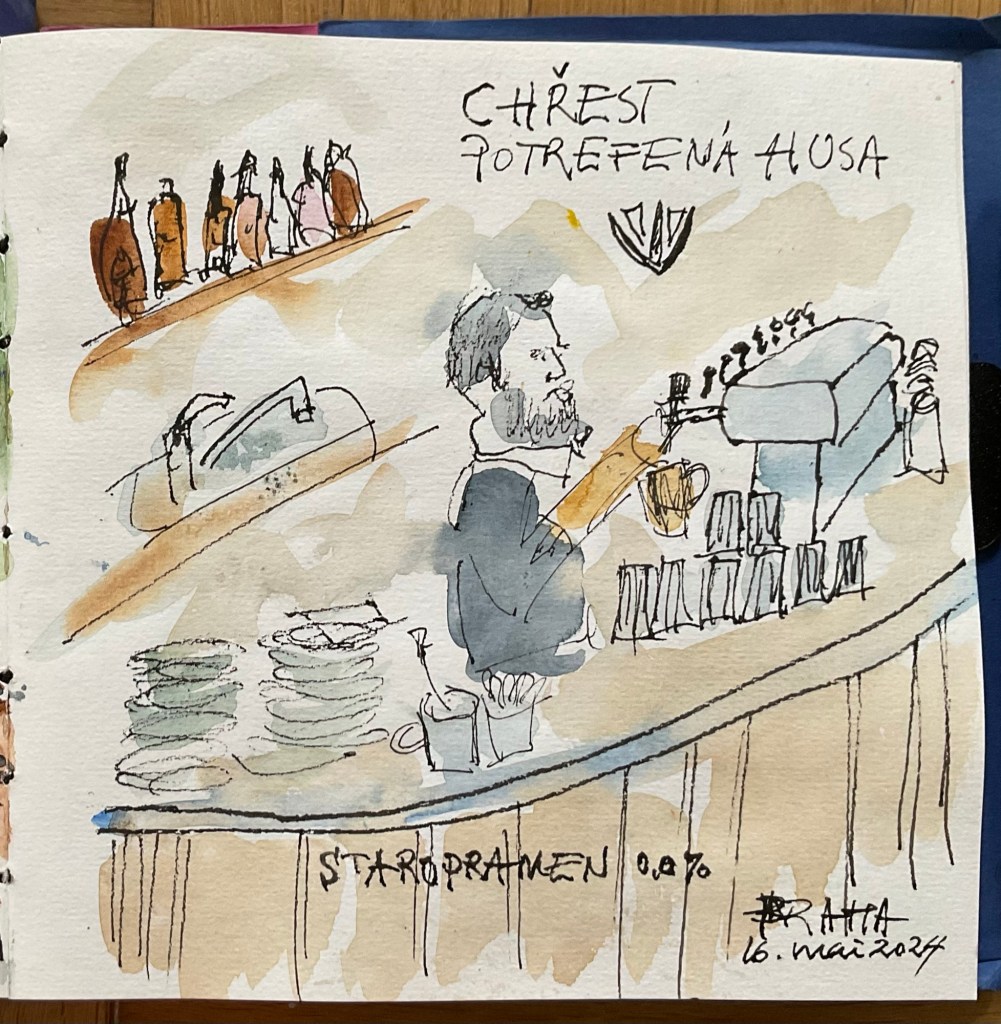 CHŘEST
POTREFENÁ HUSA
STAROPRAMEN 0,0%
PRAHA
16. mai 2024